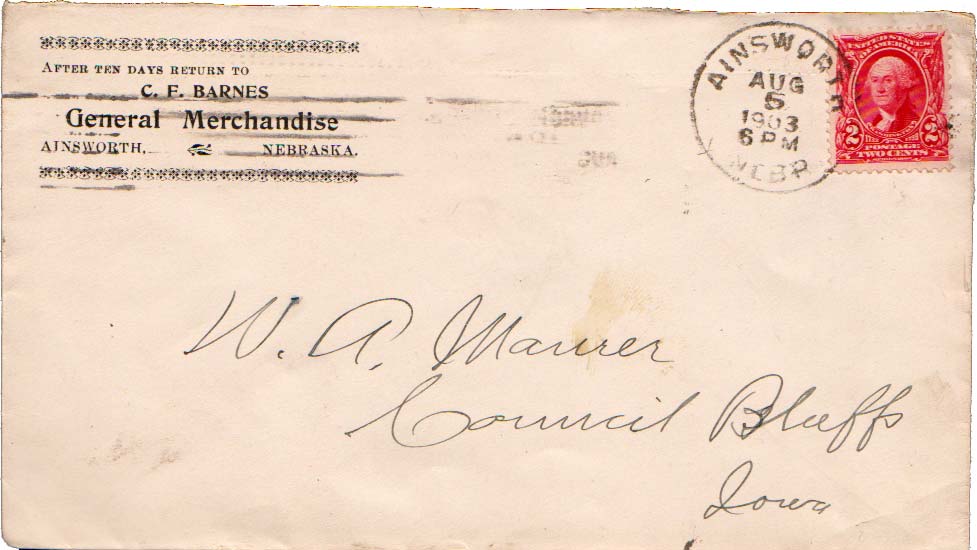 AFTER TEN DAYS RETURN TO
C. F. BARNES
General Merchandise
AINSWORTH, NEBRASKA.
AINSWORTH
AUG
5
1903
6 PM
NEBR
UNITED STATES
OF AMERICA
2 2
POSTAGE
TWO CENTS
W. A. Maurer
Council Bluffs
Iowa